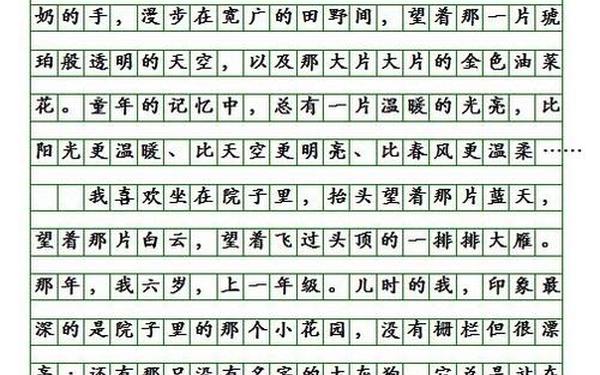 奶的手，漫步在宽广的田野间，望着那一片琥
珀般透明的天空，以及那大片大片的金色油菜
花。童年的记忆中，总有一片温暖的光亮，比
阳光更温暖、比天空更明亮、比春风更温柔……
我喜欢坐在院子里，抬头望着那片蓝天，
望着那片白云，望着飞过头顶的一排排大雁。
那年，我六岁，上一年级。儿时的我，印象最
深的是院子里的那个小花园，没有栅栏但很漂
亮；还有那只没有名字的大灰狗，它总是趴在